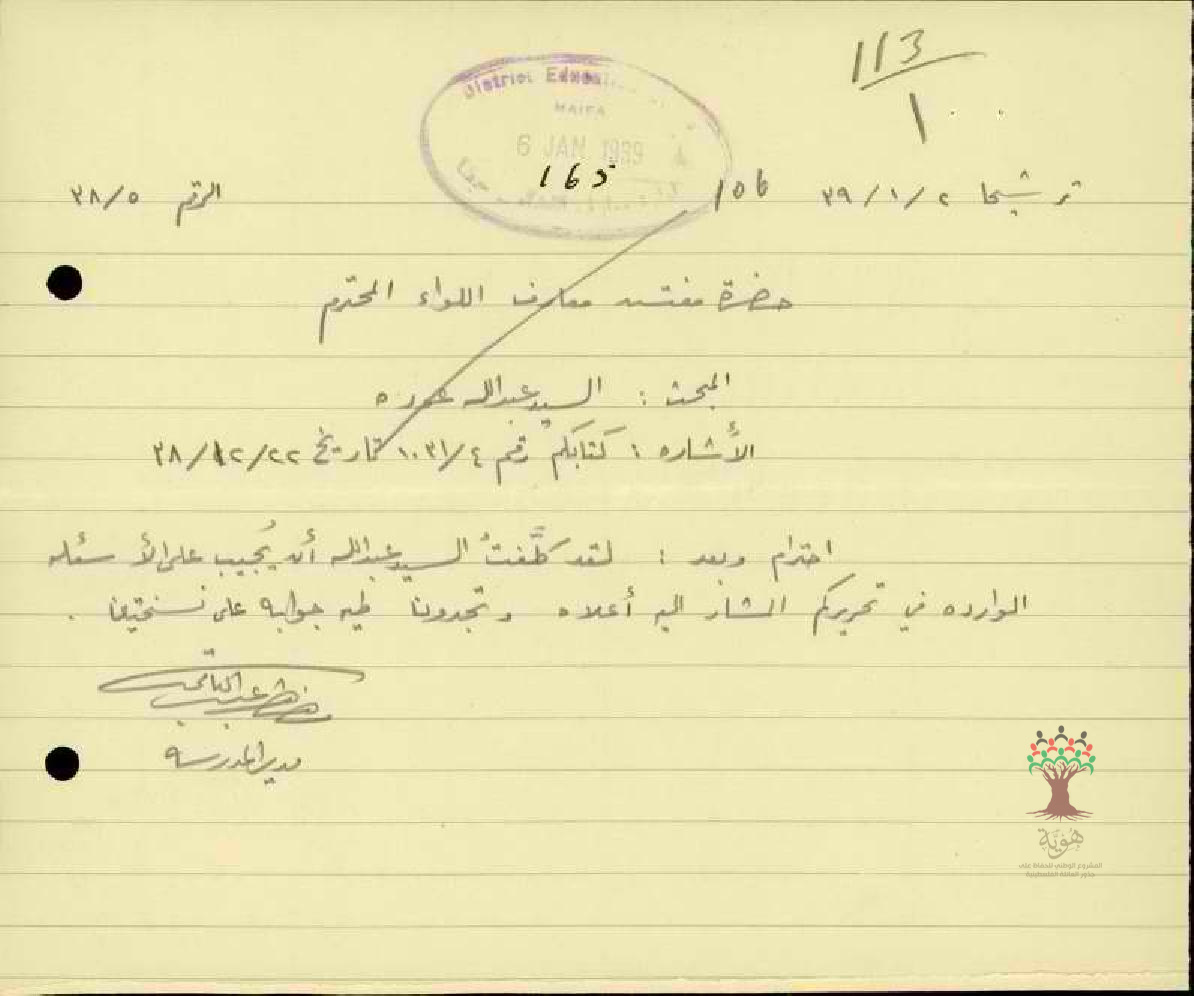 113
1
District
HAIFA
6 JAN 1939
165
ترشيحا ٣٩/١/٢
106
الرقم ٣٨/٥
حضرة مفتش معارف اللواء المحترم
المبحث : السيد عبدالله
الأشاره : كتابكم رقم ١٠٣١/٤ تاريخ ٣٨/١٢/٢٢
احترام وبعد : لقد كلَّفتُ السيد عبدالله أن يُجيب على الأسئله
الوارده في تحريركم المشار اليه أعلاه وتجدون طيه جوابه على نسختين .
مدير المدرسه
هُويّة
المشروع الوطني للحفاظ على
جذور العائلة الفلسطينية